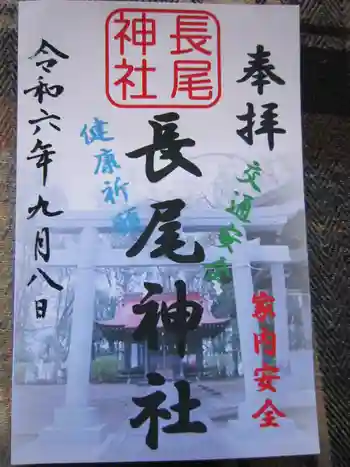 奉拝
長尾
神社
長尾神社
交通安全
家内安全
健康祈願
令和六年九月八日